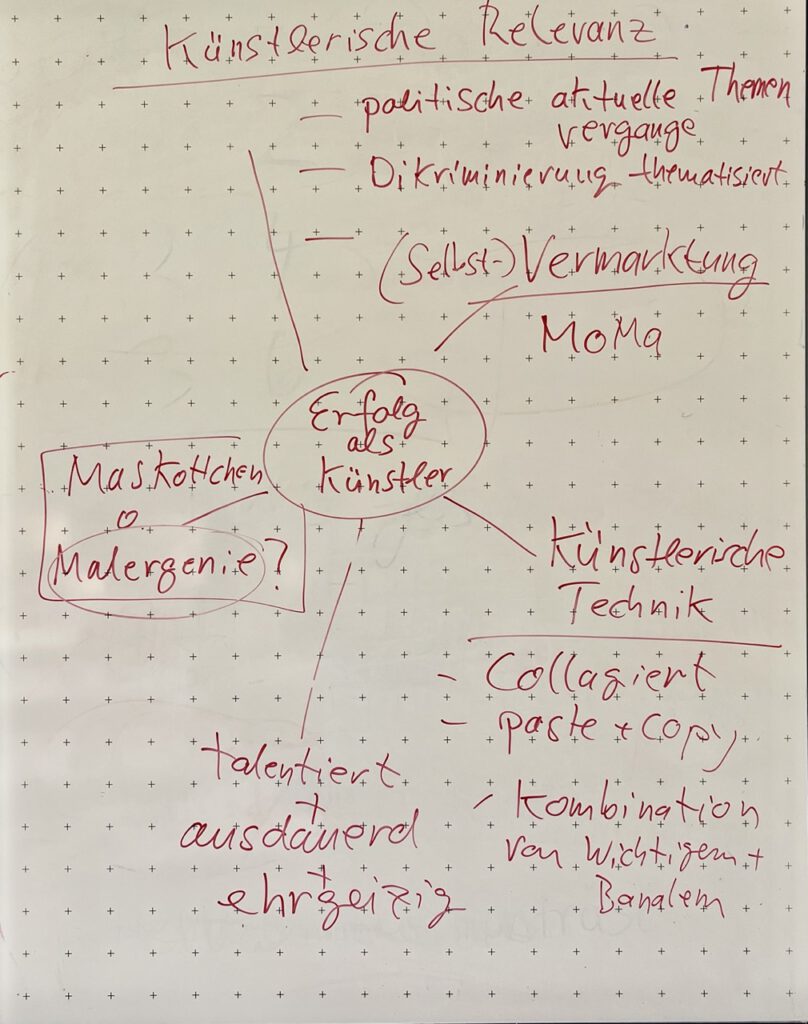 Künstlerische Relevanz
– politische aktuelle Themen
vergange
– Dikriminierung thematisiert
– (Selbst-)Vermarktung
MoMa
Erfolg
als
Künstler
Maskottchen
o.
Malergenie?
Künstlerische
Technik
- Collagiert
- paste + copy
- Kombination
von Wichtigem +
Banalem
talentiert
+
ausdauerd
+
ehrgeizig